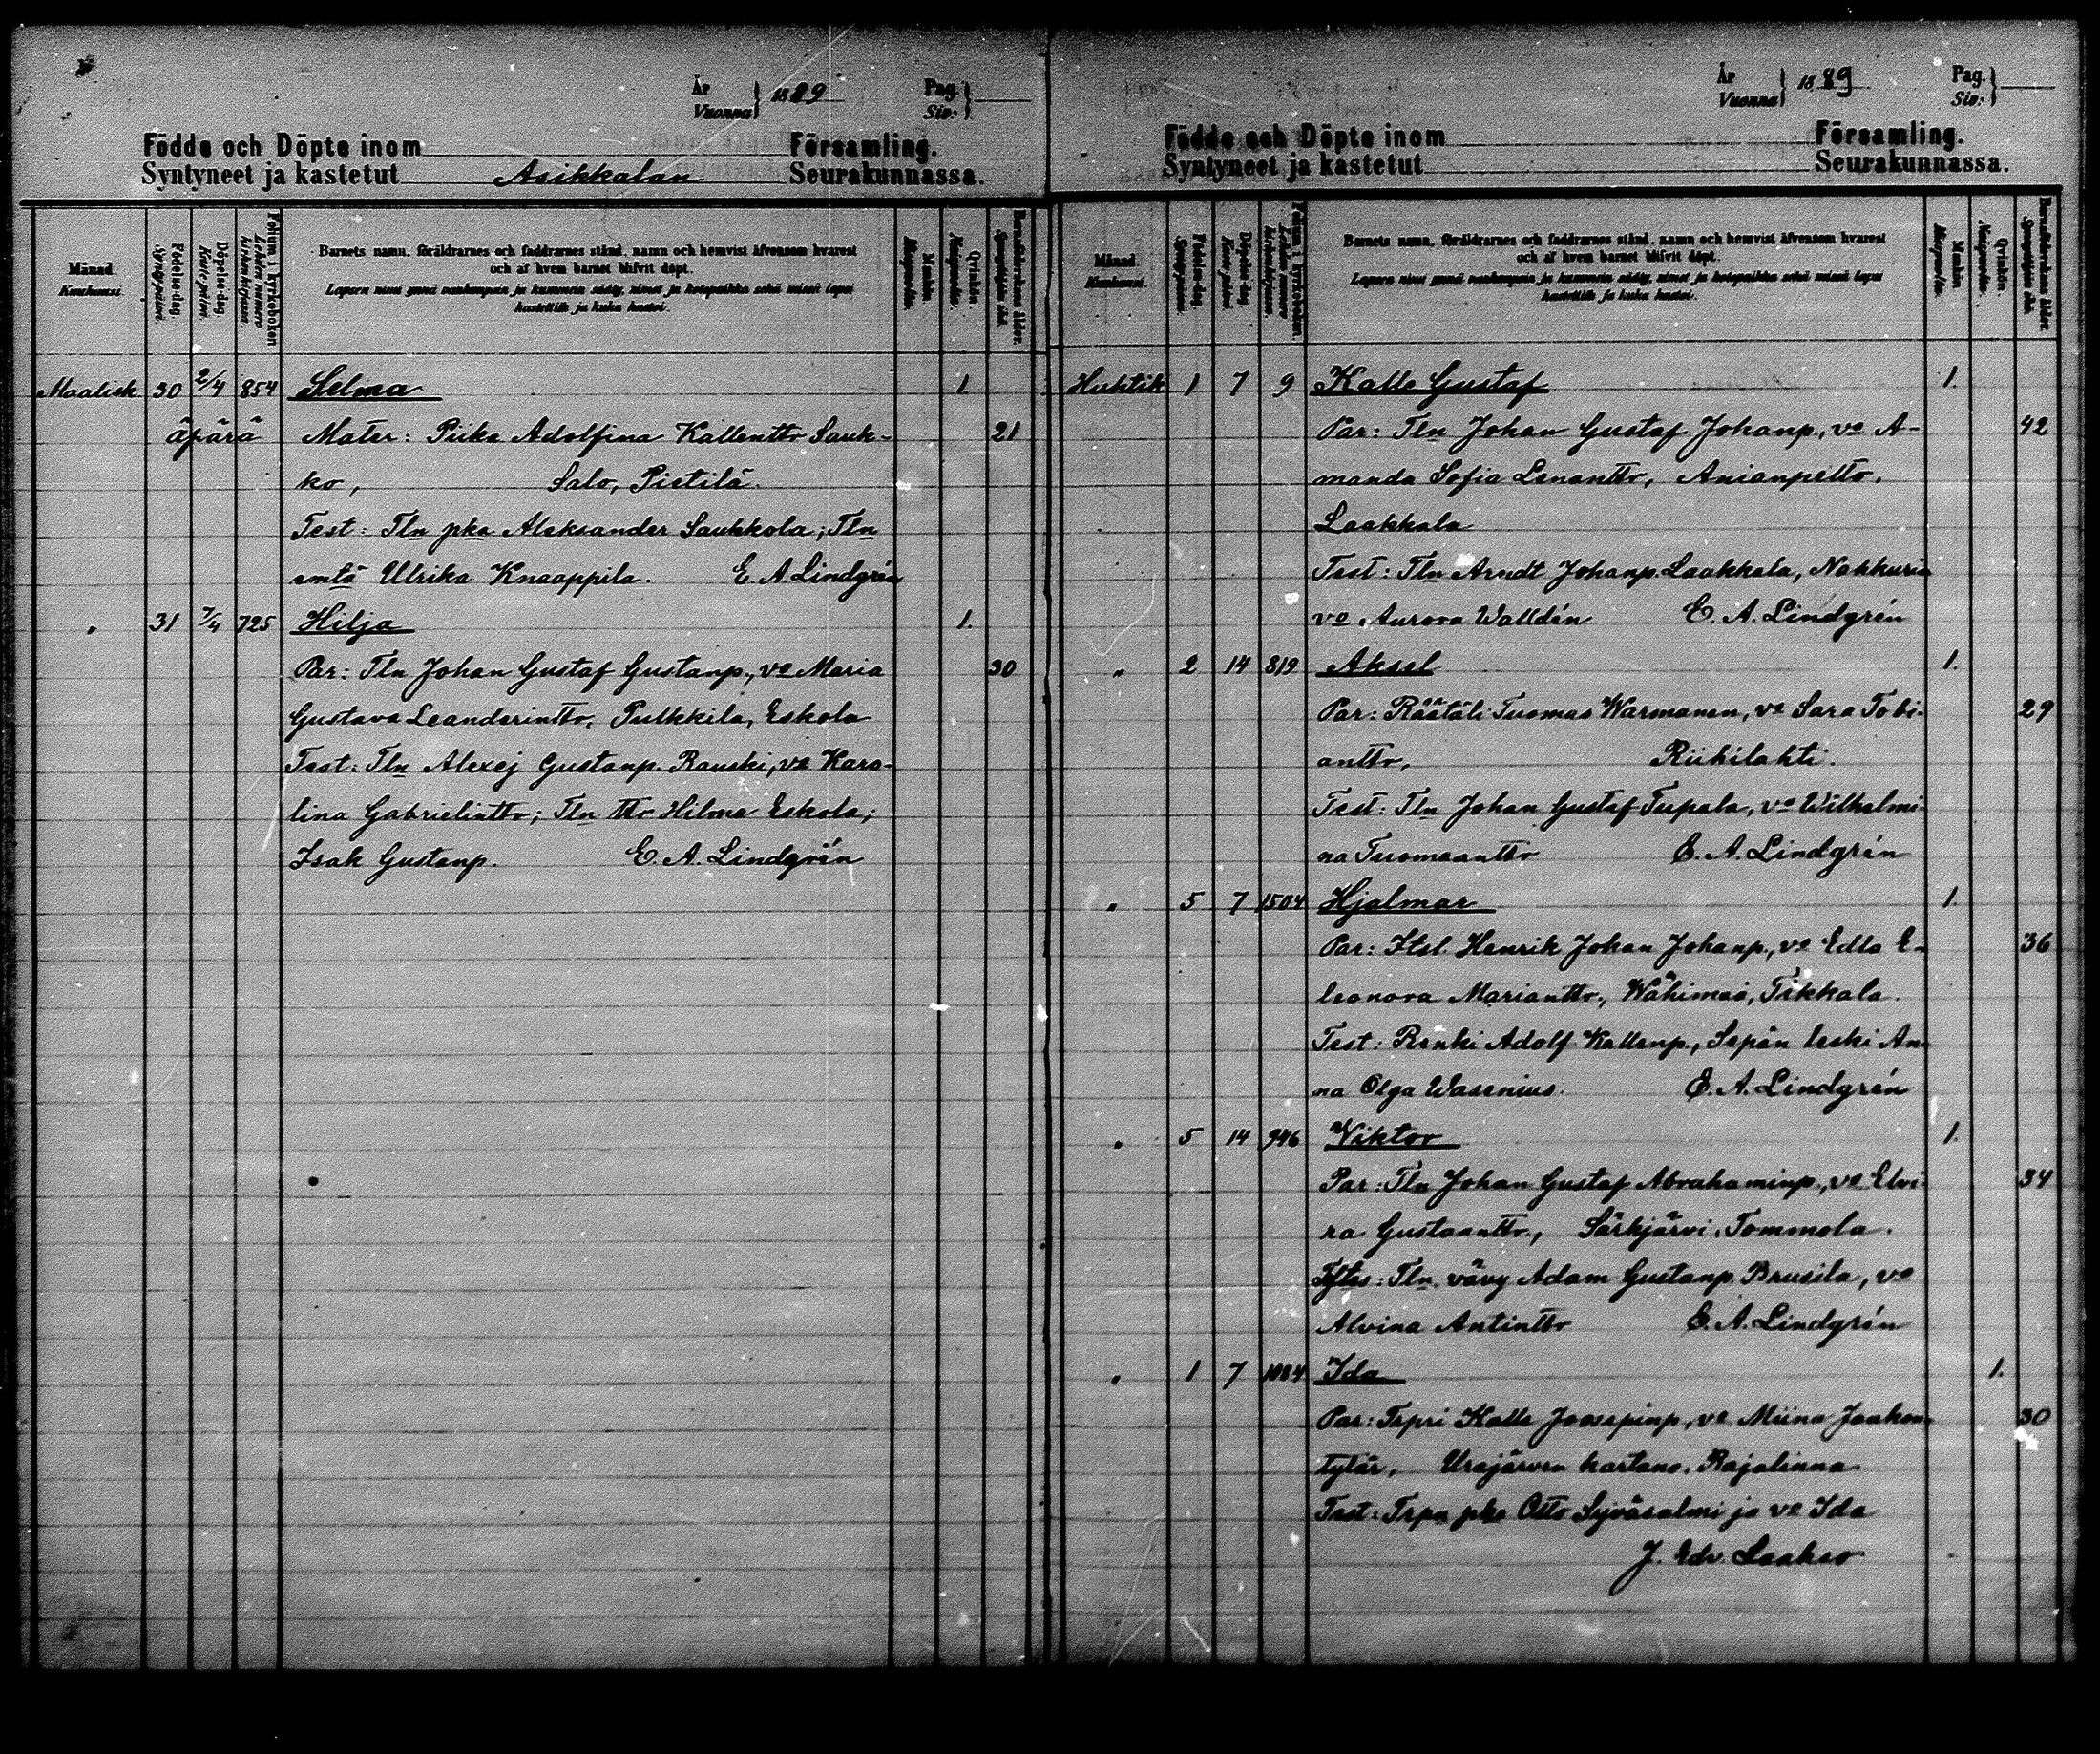 År
Vuonna } 1889 Pag.
Siv: }
Födde och Döpte inom Församling.
Syntyneet ja kastetut Asikkalan Seurakunnassa.
Månad.
Kuukausi.
Födelse-dag.
Syntypäivä.
Döpelse-dag
Kastepäivä.
Folium i kyrkoboken
Lehden numero
kirkonkirjassa
Barnets namn, föräldrarnes och faddrarnes stånd, namn och hemvist äfvensom hvarest
och af hvem barnet blifvit döpt.
Lapsen nimi ynnä vanhempain ja kummein sääty, nimet ja kotopaikka sekä missä lapsi
kastettiin ja kuka kastoi.
Mankön.
Miespuolta.
Qvinkön.
Naispuolta.
Barnaföderskans ålder.
Synnyttäjän ikä.
Maalisk 30 2/4 854 Selma 1.
äpärä Mater: Piika Adolfina Kallentr Sauk- 21
ko, Salo, Pietilä.
Test: Tln pka Aleksander Saukkola; Tln
emtä Ulrika Knaappila. E. A. Lindgrén
" 31 7/4 725 Hilja 1.
Par: Tln Johan Gustaf Gustanp., vo Maria 30
Gustava Leanderinttr, Pulkkila, Eskola
Test: Tln Alexej Gustanp. Rauski, vo Karo-
lina Gabrielinttr; Tln ttr Hilma Eskola;
Isak Gustanp. E. A. Lindgrén
År
Vuonna } 1889 Pag.
Siv: }
Födde och Döpte inom Församling.
Syntyneet ja kastetut Seurakunnassa.
Månad.
Kuukausi.
Födelse-dag.
Syntypäivä.
Döpelse-dag
Kastepäivä.
Folium i kyrkoboken
Lehden numero
kirkonkirjassa
Barnets namn, föräldrarnes och faddrarnes stånd, namn och hemvist äfvensom hvarest
och af hvem barnet blifvit döpt.
Lapsen nimi ynnä vanhempain ja kummein sääty, nimet ja kotopaikka sekä missä lapsi
kastettiin ja kuka kastoi.
Mankön.
Miespuolta.
Qvinkön.
Naispuolta.
Barnaföderskans ålder.
Synnyttäjän ikä.
Huhtik 1 7 9 Kalle Gustaf 1.
Par: Tln Johan Gustaf Johanp., vo A- 42
manda Sofia Lenanttr, Anianpelto,
Laakkala
Test: Tln Arndt Johanp. Laakkala, Nahkurin
vo Aurora Walldén E. A. Lindgrén
" 2 14 819 Aksel 1.
Par: Räätäli Tuomas Warmanen, vo Sara Tobi- 29
anttr, Riihilahti.
Test: Tln Johan Gustaf Tupala, vo Wilhelmi-
na Tuomaanttr E. A. Lindgrén
" 5 7 1504 Hjalmar 1.
Par: Itsl. Henrik Johan Johanp., vo Edla E- 36
leonora Marianttr, Wähimaa, Tikkala.
Test: Renki Adolf Kallenp., Sepän leski An-
na Olga Wasenius. E. A. Lindgrén
" 5 14 946 Wiktor 1.
Par: Tln Johan Gustaf Abrahaminp., vo Elvi- 34
ra Gustaanttr, Särkjärvi, Tommola.
Tln vävy Adam Gustanp. Brusila, vo
Alvina Antinttr E. A. Lindgrén
" 1 7 1084 Ida 1.
Par: Trpri Kalle Joosepinp., vo Miina Jaakon- 30
tytär, Urajärven kartano, Rajalinna
Test: Trpn pka Otto Syväsalmi ja vo Ida
J. Edv. Laakso